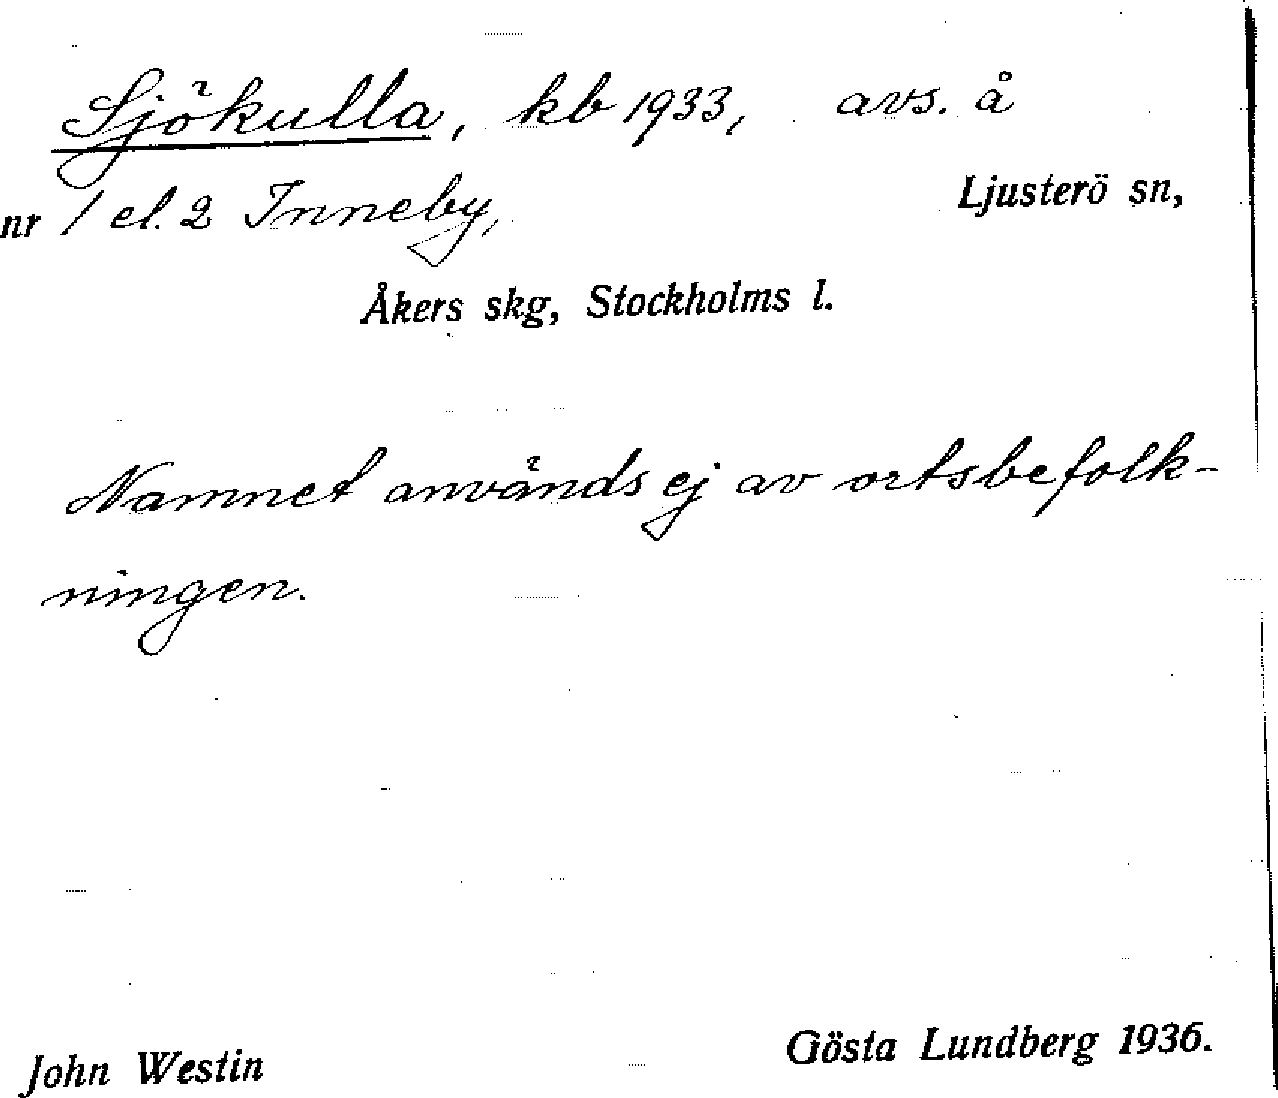 Sjökulla, kb 1933, avs. å
nr 1 el. 2 Inneby, Ljusterö sn,
Åkers skg, Stockholms l.
Namnet används ej av ortsbefolk-
ningen.
John Westin Gösta Lundberg 1936.